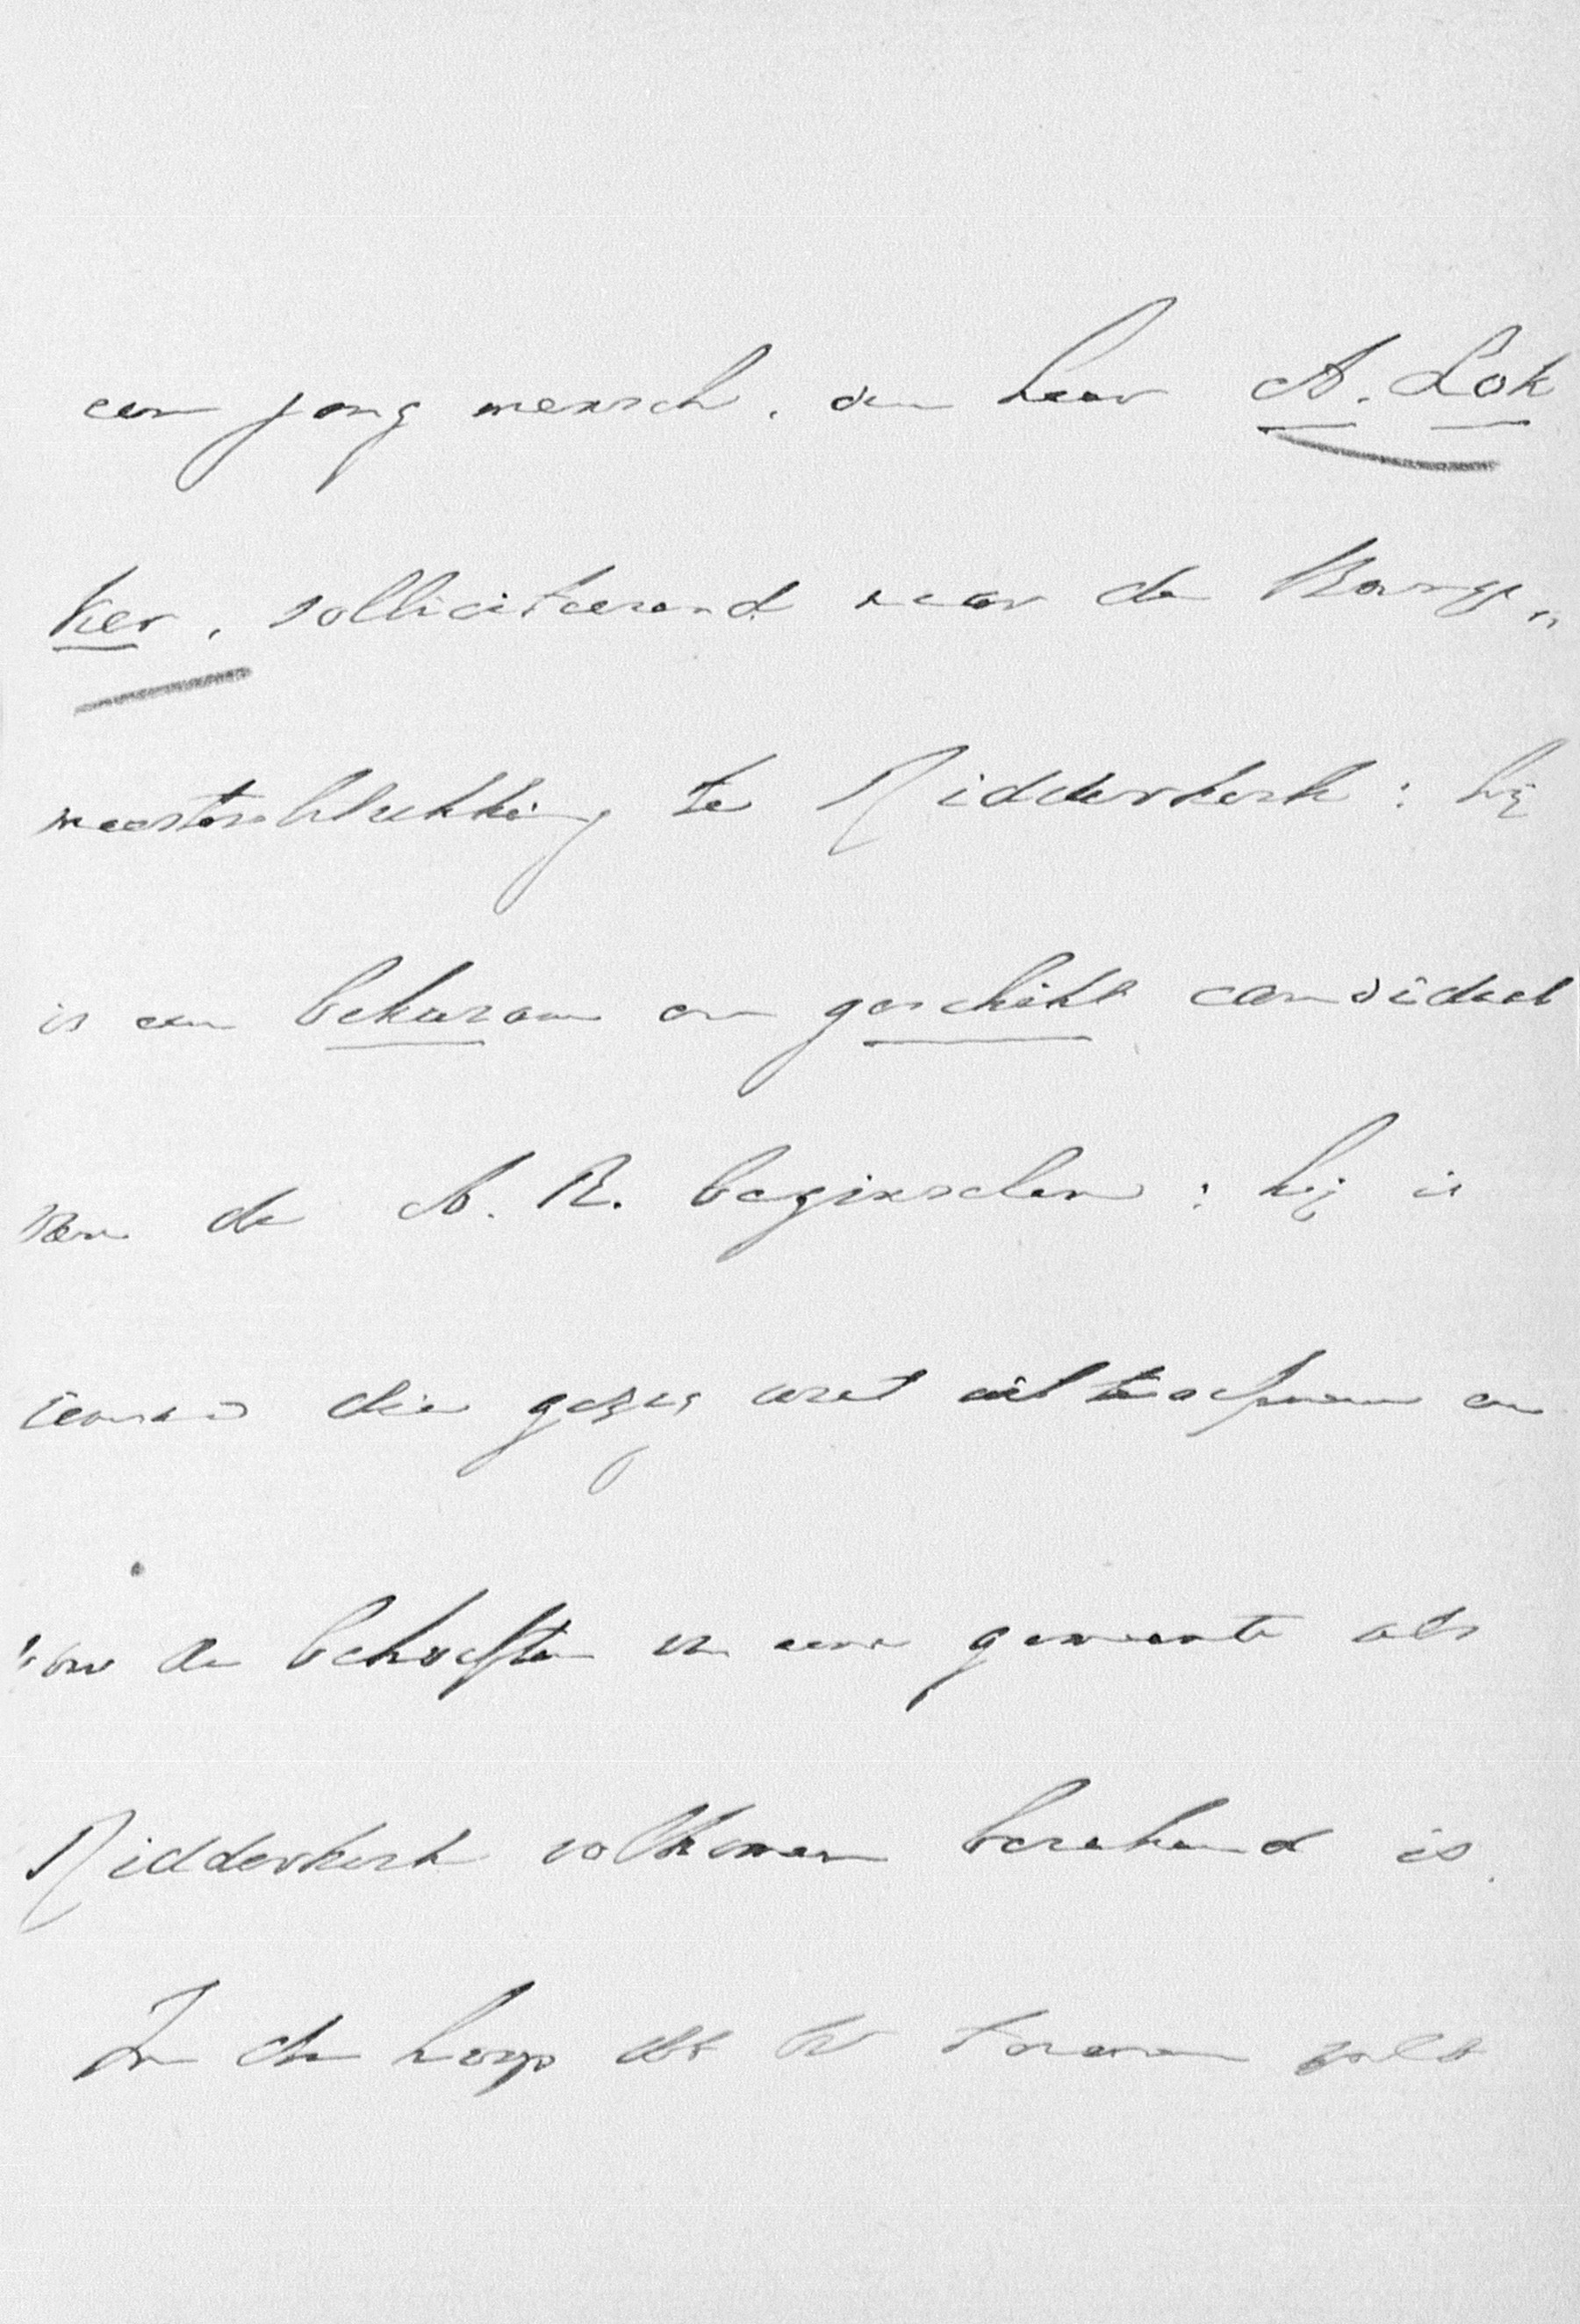 een jong mensch, den heer A. Lok
ker, solliciteerend naar de Burge„
meestersbetrekking te Ridderkerk: hij
is een bekwaam en geschikt candidaat
van de A. R. beginselen: hij is
iemand die gezag weet uit te oefenen en
voor de behoeften van eene gemeente als
Ridderkerk volkomen berekend is.
In de hoop dat U